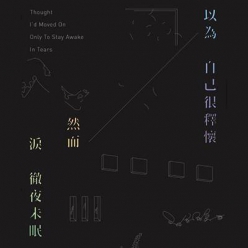 Thought
I'd Moved On
Only To Stay Awake
In Tears
以為 自己很釋懷
然而
淚 徹夜未眠